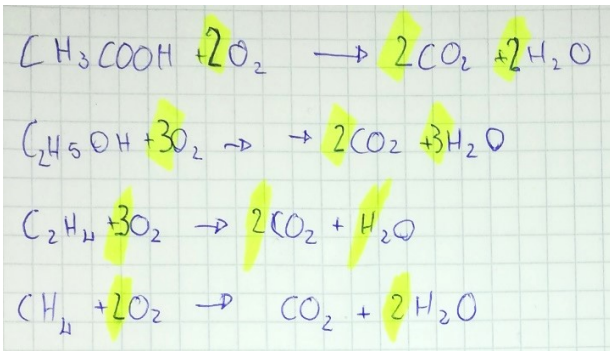 CH₃COOH +2O₂ → 2CO₂ +2H₂O
C₂H₅OH +3O₂ → → 2CO₂ +3H₂O
C₂H₄ +3O₂ → 2CO₂ + H₂O
CH₄ +2O₂ → CO₂ + 2H₂O